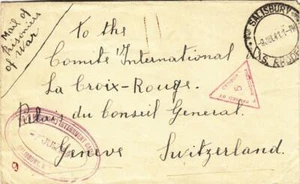 Mail of
Prisoners
of War
SALISBURY
To the
Comité International
La Croix-Rouge.
Palais du Conseil General.
Geneve Switzerland.
INTERNMENT
5